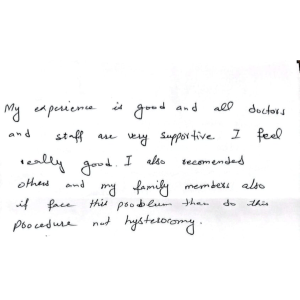 My experience is good and all doctors
and staff are very supportive I feel
really good. I also recomended
others and my family members also
if face this problem then do this
procedure not hysterocomy.